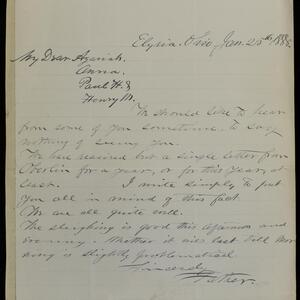 Elyria, Ohio, Jan. 25th 188
My Dear Azariah,
Anna,
Paul H. &
Henry M.
We should like to hear
from some of you sometime, to say
nothing of seeing you.
We had received but a single letter from
Oberlin for a year, or for this year, at
least. I write simply to put
you all in mind of this fact.
We are all quite well.
The sleighing is good this afternoon and
evening. Whether it will last till mor-
ning is slightly problematical.
Sincerely
Father.